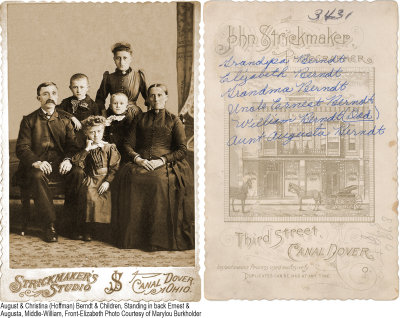 STRICKMAKER'S
STUDIO
S
CANAL DOVER,
OHIO.
3431
John Strickmaker
PHOTOGRAPHER
Grandpa Berndt
Elizabeth Berndt
Grandma Berndt
Uncle Earnest Berndt
William Berndt (Dad)
Aunt Augusta Berndt
Third Street,
CANAL DOVER,
DUPLICATES CAN BE HAD AT ANY TIME.
August & Christina (Hoffman) Berndt & Children, Standing in back Ernest &
Augusta, Middle-William, Front-Elizabeth Photo Courtesy of Marylou Burkholder